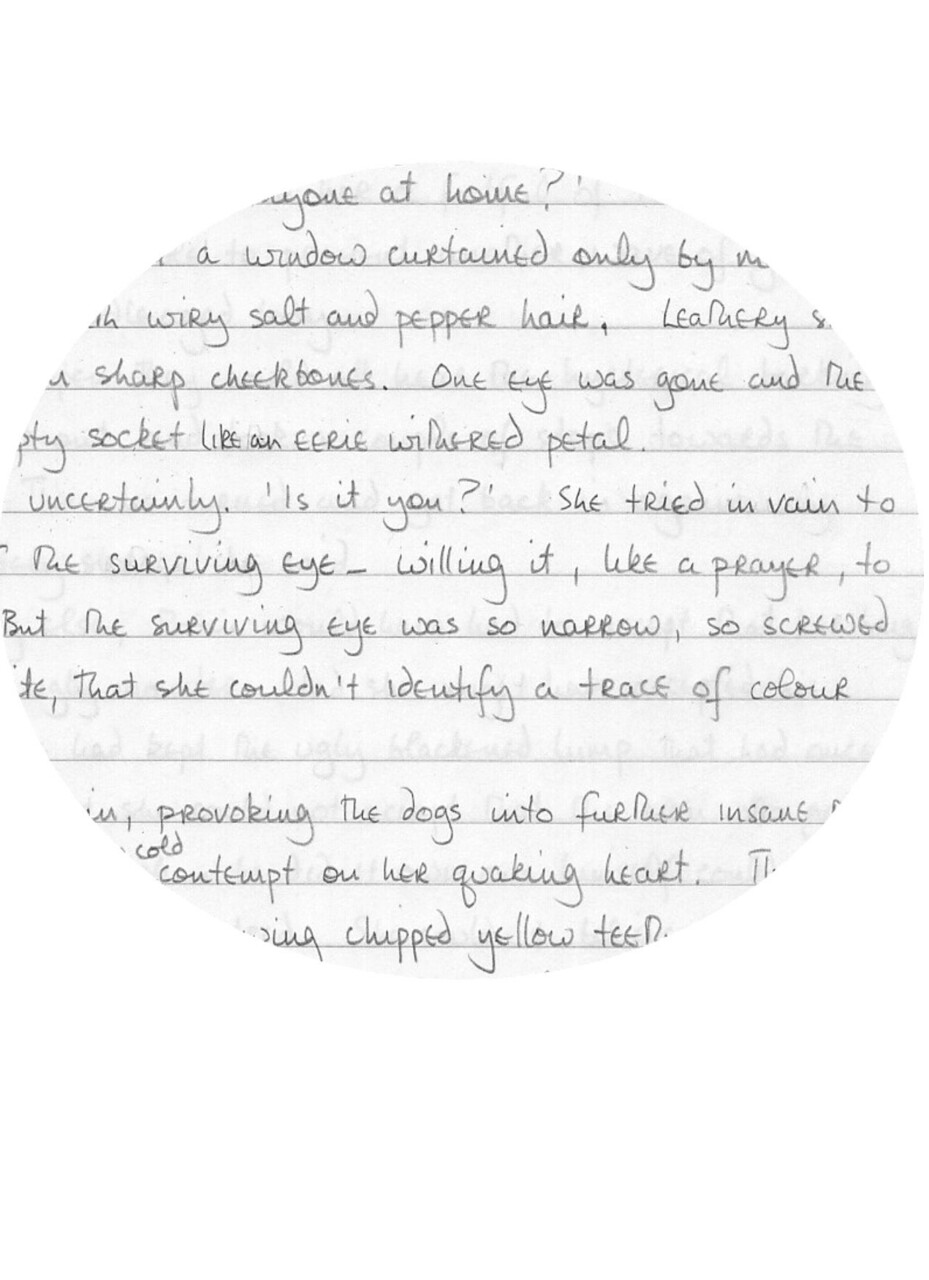 at home?'
a window curtained only by
wiry salt and pepper hair. Leathery
sharp cheekbones. One eye was gone and the
socket like an eerie withered petal.
uncertainly. 'Is it you?' She tried in vain to
the surviving eye – willing it, like a prayer, to
But the surviving eye was so narrow, so screwed
that she couldn't identify a trace of colour
provoking the dogs into further insane
cold
contempt on her quaking heart.
chipped yellow teeth